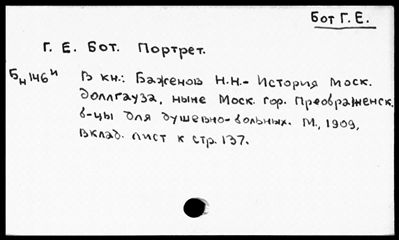 Бот Г. Е.
Г. Е. Бот. Портрет.
Бн 146и В кн.: Баженов Н.Н.- История Моск.
доллгауза, ныне Моск. гор. Преображенск.
б-цы для душевно-больных. М., 1909,
вклад. лист к стр. 137.